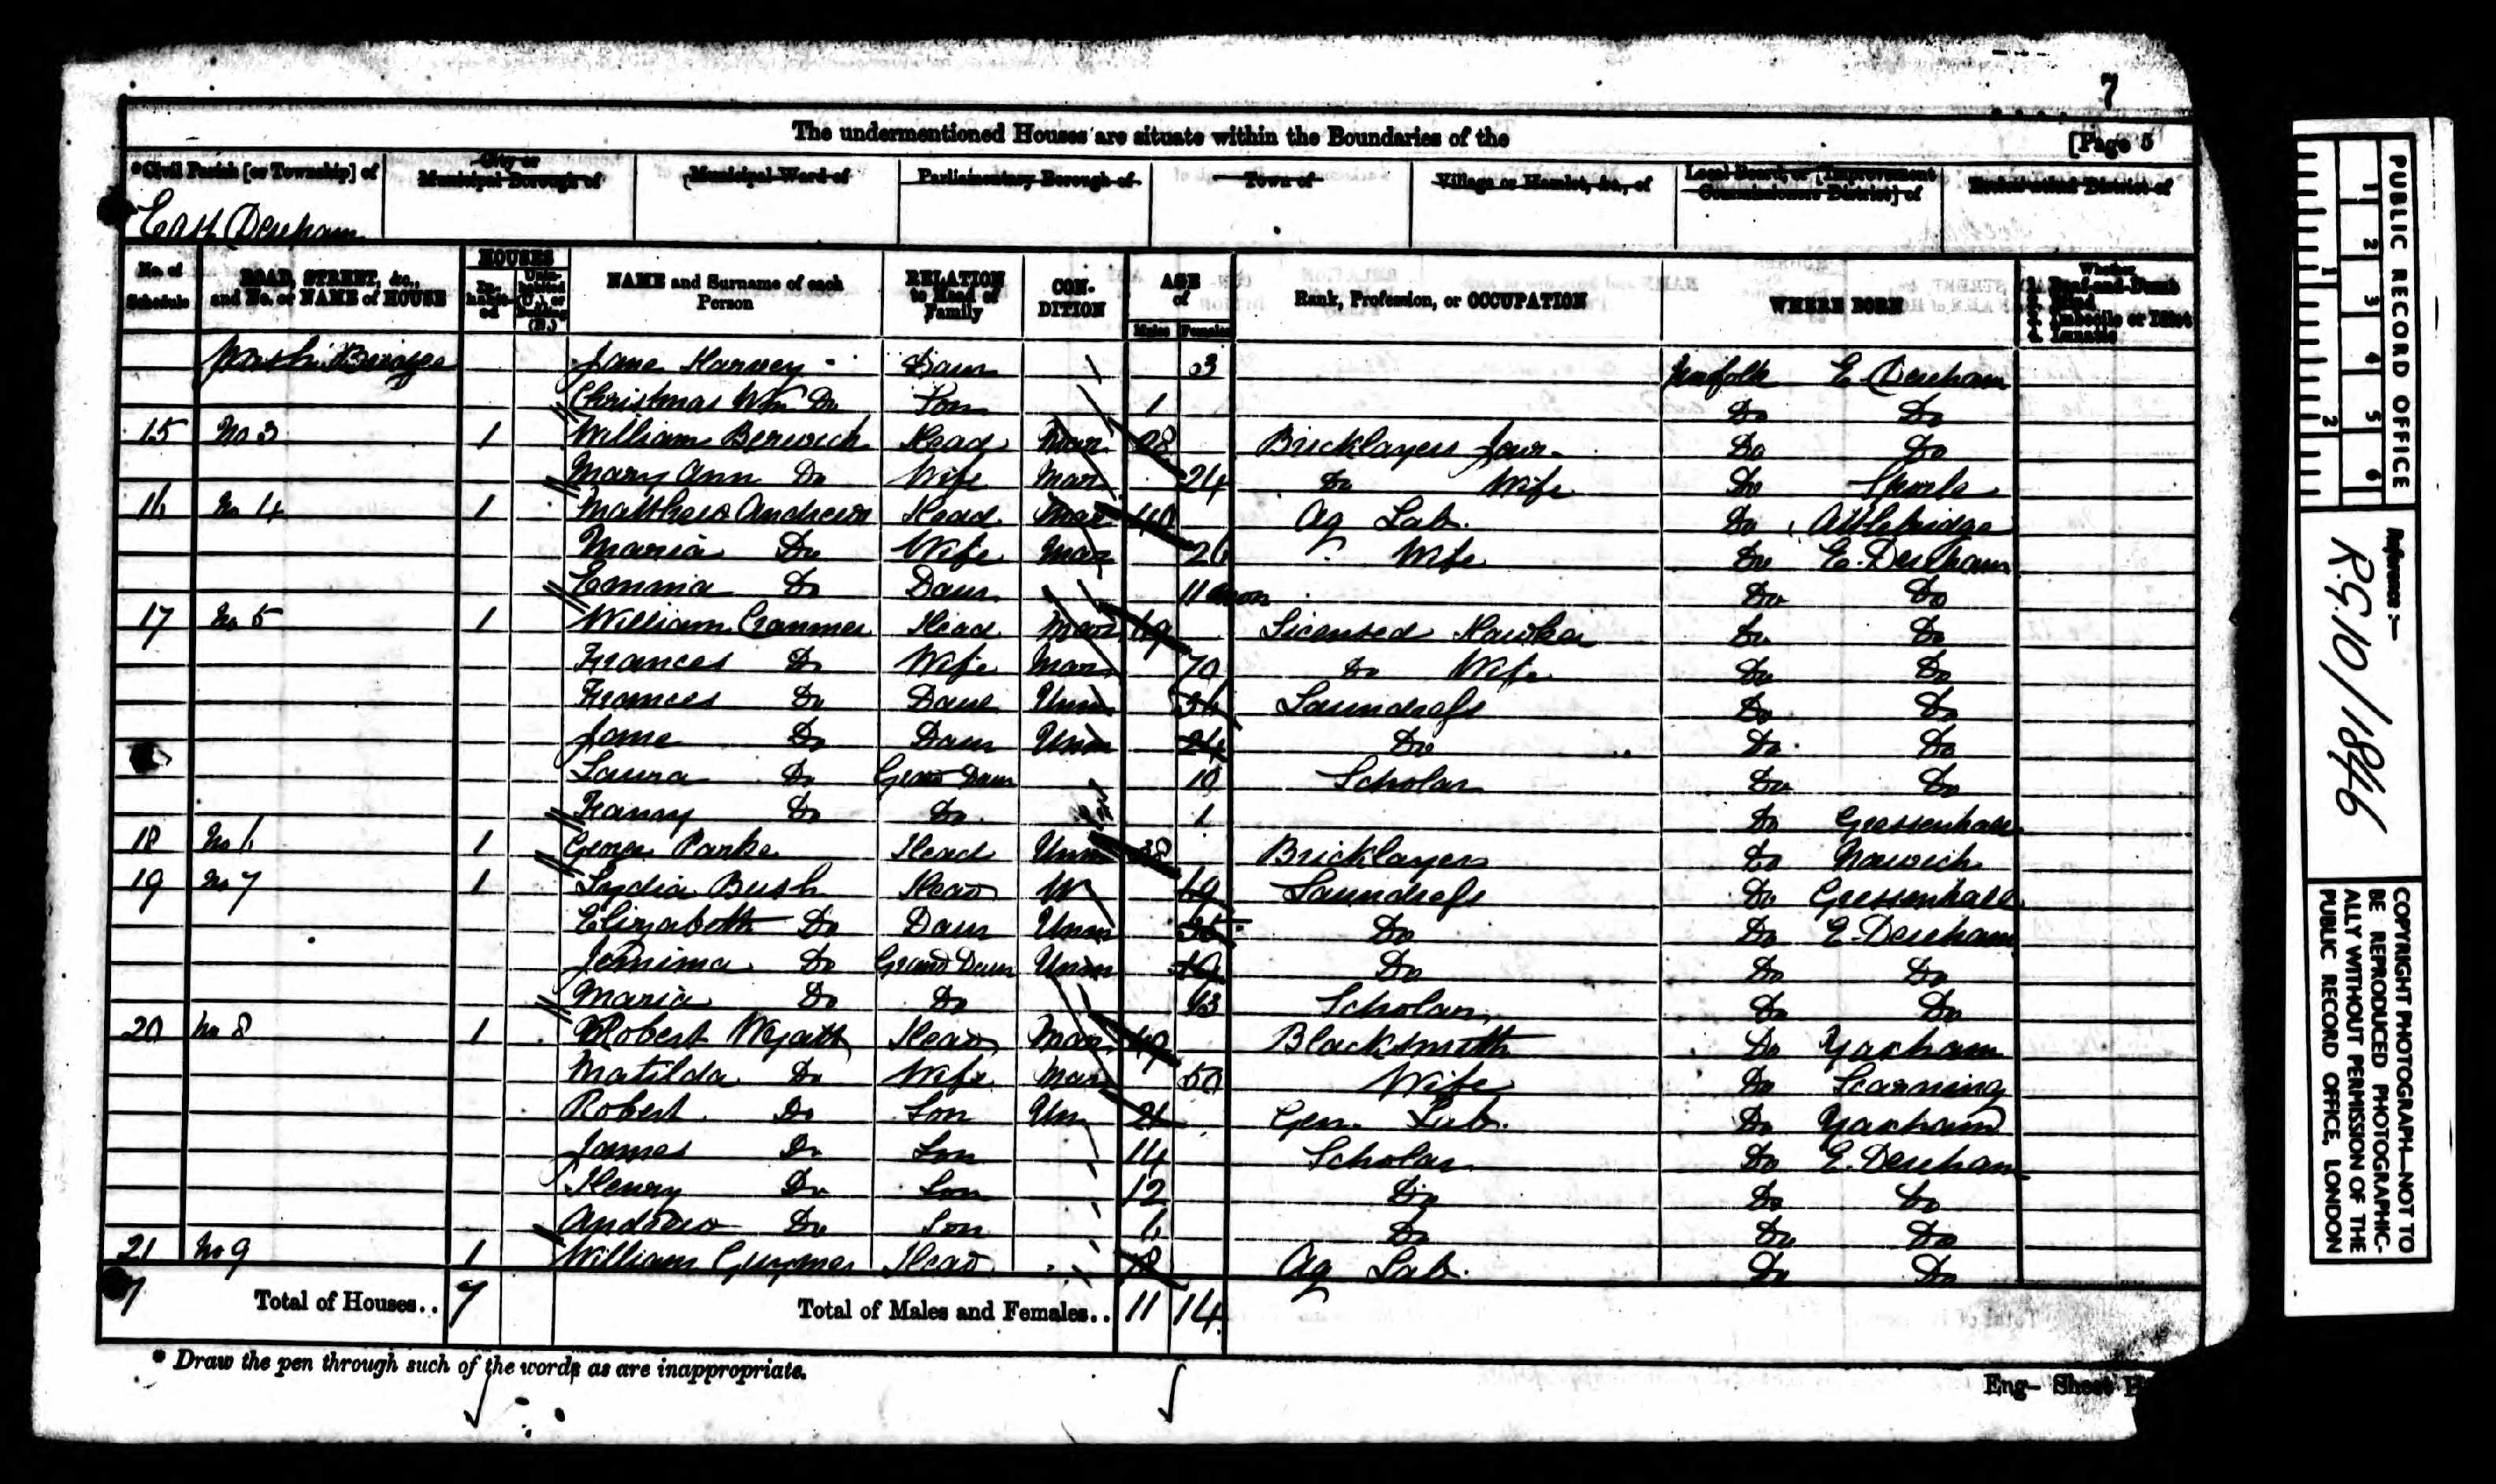 7
The undermentioned Houses are situate within the Boundaries of the [Page 5
*Civil Parish [or Township] of City or Municipal Borough of Municipal Ward of Parliamentary Borough of Town of Village or Hamlet, &c., of Local Board, or [Improvement Commissioners District] of Ecclesiastical District of
East Dereham
No. of Schedule ROAD, STREET, &c., and No. or NAME of HOUSE HOUSES Inhabited Uninhabited (U.), or Building (B.) NAME and Surname of each Person RELATION to Head of Family CONDITION AGE of Males Females Rank, Profession, or OCCUPATION WHERE BORN Whether 1. Deaf-and-Dumb 2. Blind 3. Imbecile or Idiot 4. Lunatic
Jane Harvey Daur 3 Norfolk E. Dereham
Christmas Wm Do Son 1 Do Do
15 No 3 1 William Berwick Head Mar 28 Bricklayers Do Do
Mary Ann Do Wife Mar 24 Do Wife Do
16 No 4 1 Matthew Andrews Head Mar 40 Ag Lab. Do Attlebridge
Maria Do Wife Mar 26 Wife Do E. Dereham
Emma Do Daur 11 mon Do Do
17 No 5 1 William Cranmer Head Mar 69 Licensed Hawker Do Do
Frances Do Wife Mar 70 Do Wife Do Do
Frances Do Daur Unm Laundress Do Do
Jane Do Daur Unm 24 Do Do Do
Laura Do Grand Daur 10 Scholar Do Do
Fanny Do Do 1 Do Gressenhall
18 No 6 1 George Parke Head Unm 38 Bricklayer Do Norwich
19 No 7 1 Lydia Bush Head W 69 Laundress Do Gressenhall
Elizabeth Do Daur Unm Do Do E. Dereham
Jemima Do Grand Daur Unm 19 Do Do Do
Maria Do Do Scholar Do Do
20 No 8 1 Robert Wyatt Head Mar 49 Blacksmith Do Yaxham
Matilda Do Wife Mar 50 Wife Do Scarning
Robert Do Son Un 21 Gen. Lab. Do Yaxham
James Do Son 14 Scholar Do E. Dereham
Henry Do Son 12 Do Do Do
Andrew Do Son 6 Do Do Do
21 No 9 1 William Head Ag Lab. Do Do
7 Total of Houses.. 7 Total of Males and Females.. 11 14
* Draw the pen through such of the words as are inappropriate.
Eng- Sheet
PUBLIC RECORD OFFICE
1 2 3 4 5 6
1 2
Reference :-
R.G.10/1846
COPYRIGHT PHOTOGRAPH—NOT TO BE REPRODUCED PHOTOGRAPHICALLY WITHOUT PERMISSION OF THE PUBLIC RECORD OFFICE, LONDON